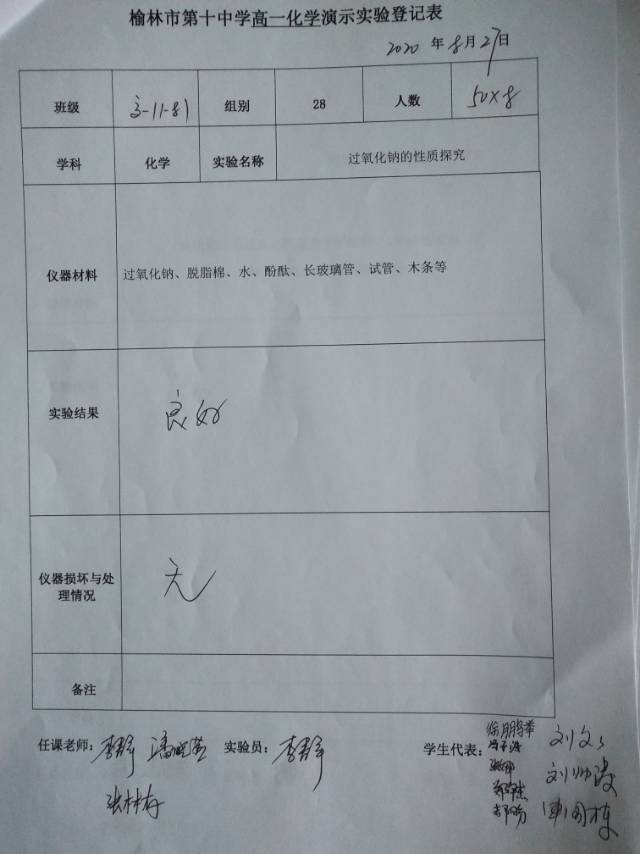 榆林市第十中学高一化学演示实验登记表
2020 年 8 月 27 日
班级 组别 28 人数 50×8
学科 化学 实验名称 过氧化钠的性质探究
仪器材料 过氧化钠、脱脂棉、水、酚酞、长玻璃管、试管、木条等
实验结果 良好
仪器损坏与处
理情况 无
备注
任课老师： 实验员： 学生代表：